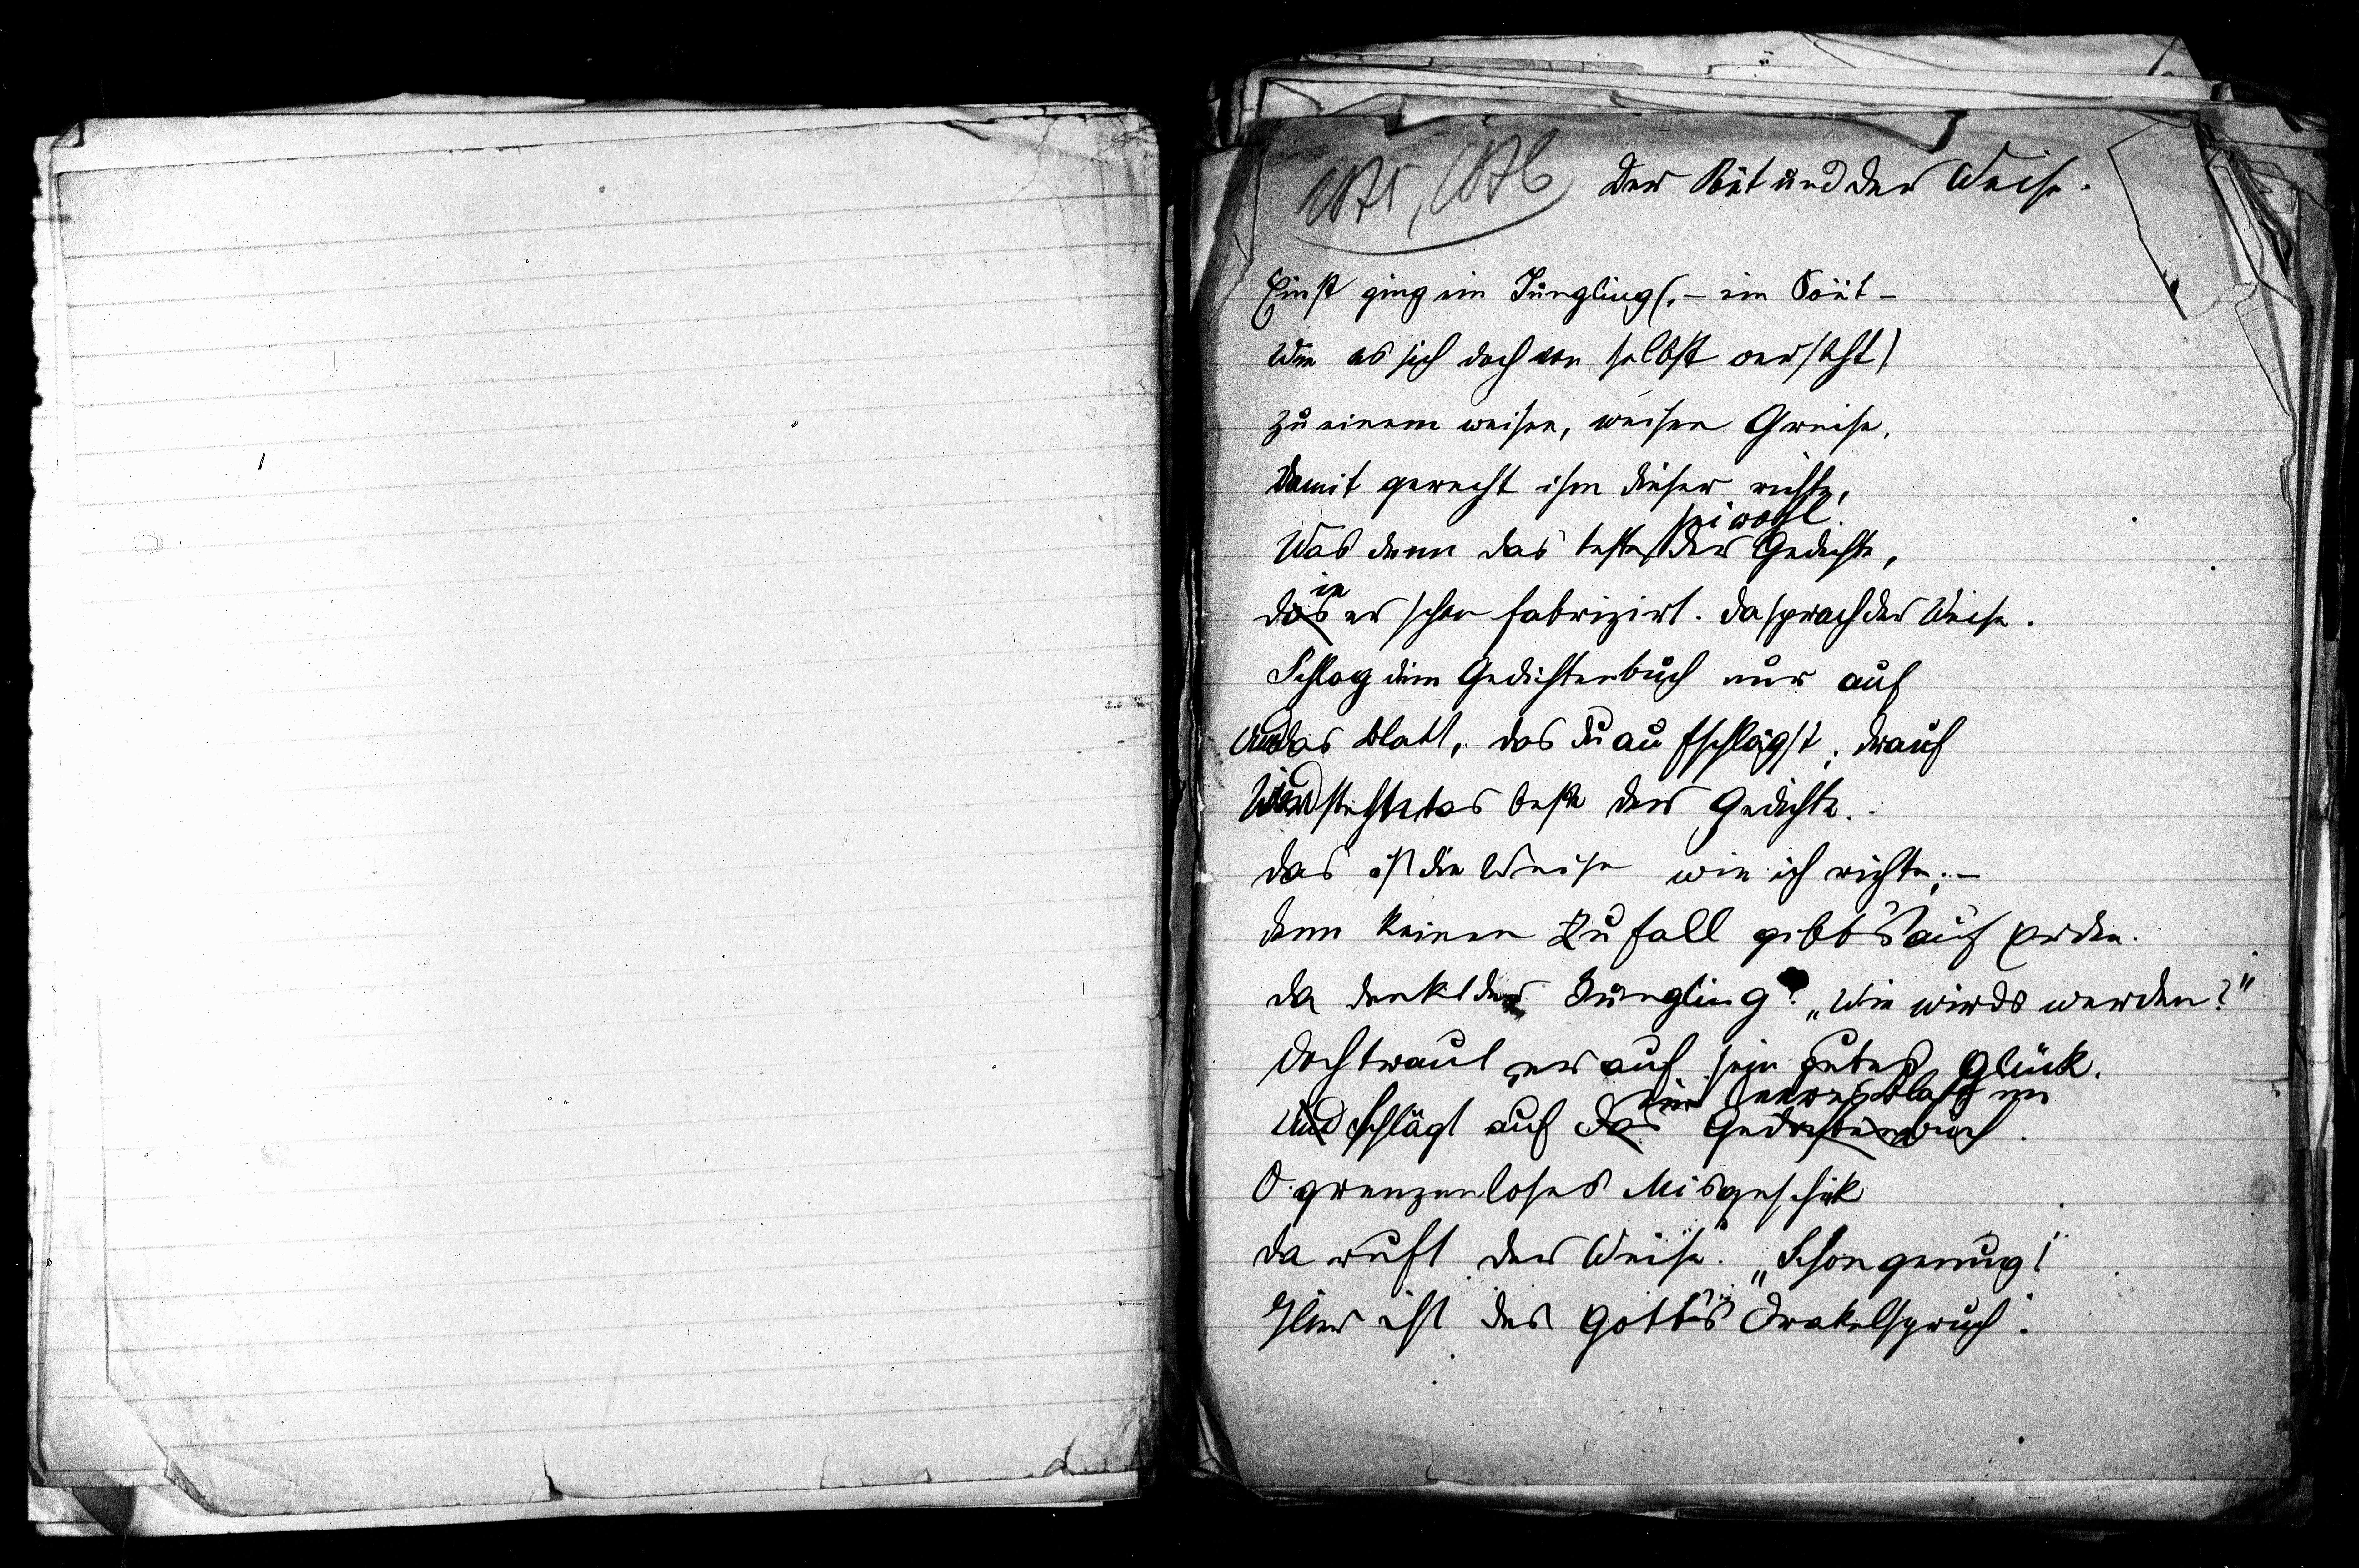 1875, 1876 Der Poët und der Weise.
Einst ging ein Jüngling (,– ein Poët –
Wie es sich doch von selbst versteht)
zu einem weisen, weisen Greise,
Damit gerecht ihm dieser richte,
sei wohl
Was denn das beste der Gedichte,
die
das er schon fabrizirt. Da sprach der Weise.
Schlag dein Gedichtenbuch nur auf
Und das Blatt, das du aufschlägst, drauf
steht das beste der Gedichte.
Das ist die Weise wie ich richte; –
Denn keinen Zufall gibt's auf Erden.
Da denkt der Jüngling: „Wie wirds werden?"
Doch traut er auf sein gutes Glück.
ein leeres Blatt nur
Und schlägt auf das Gedichtenbuch.
O grenzenloses Misgeschick
Da ruft der Weise: „Schon genug!
Hier ist des Gottes Orakelspruch.